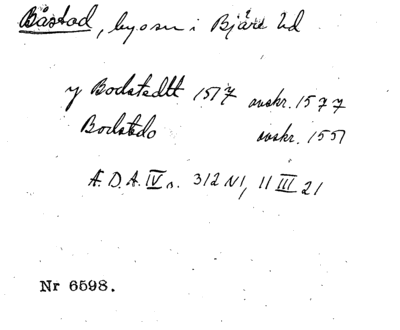 Båstad, byosn i Bjäre hd
y Bodstedtt 1517 avskr. 1577
Bodstedo avskr. 1551
A.D.A. IV s. 312 NI, 11 III 21
Nr 6598.